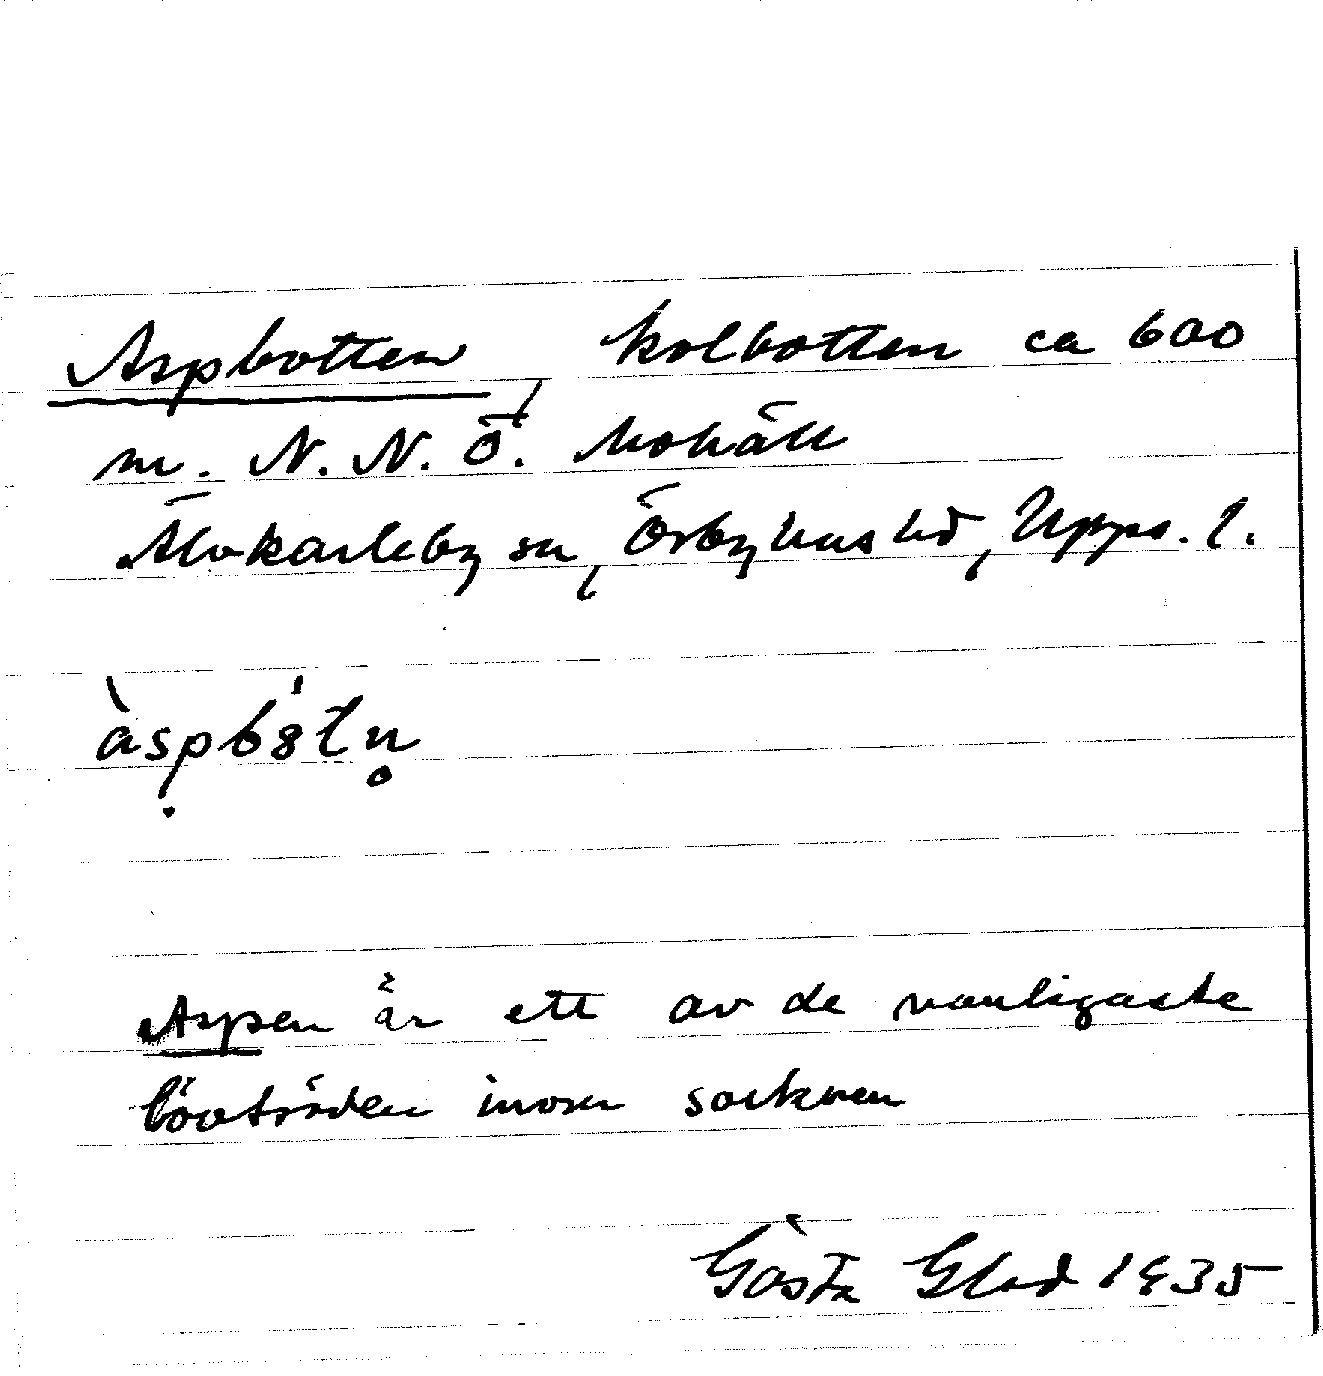 Aspbotten, kolbotten ca 600
m. N. N. Ö.
Älvkarleby sn, Örbyhus hd, Upps. l.
Aspen är ett av de vanligaste
lövträden inom socknen
Gösta Glad 1935